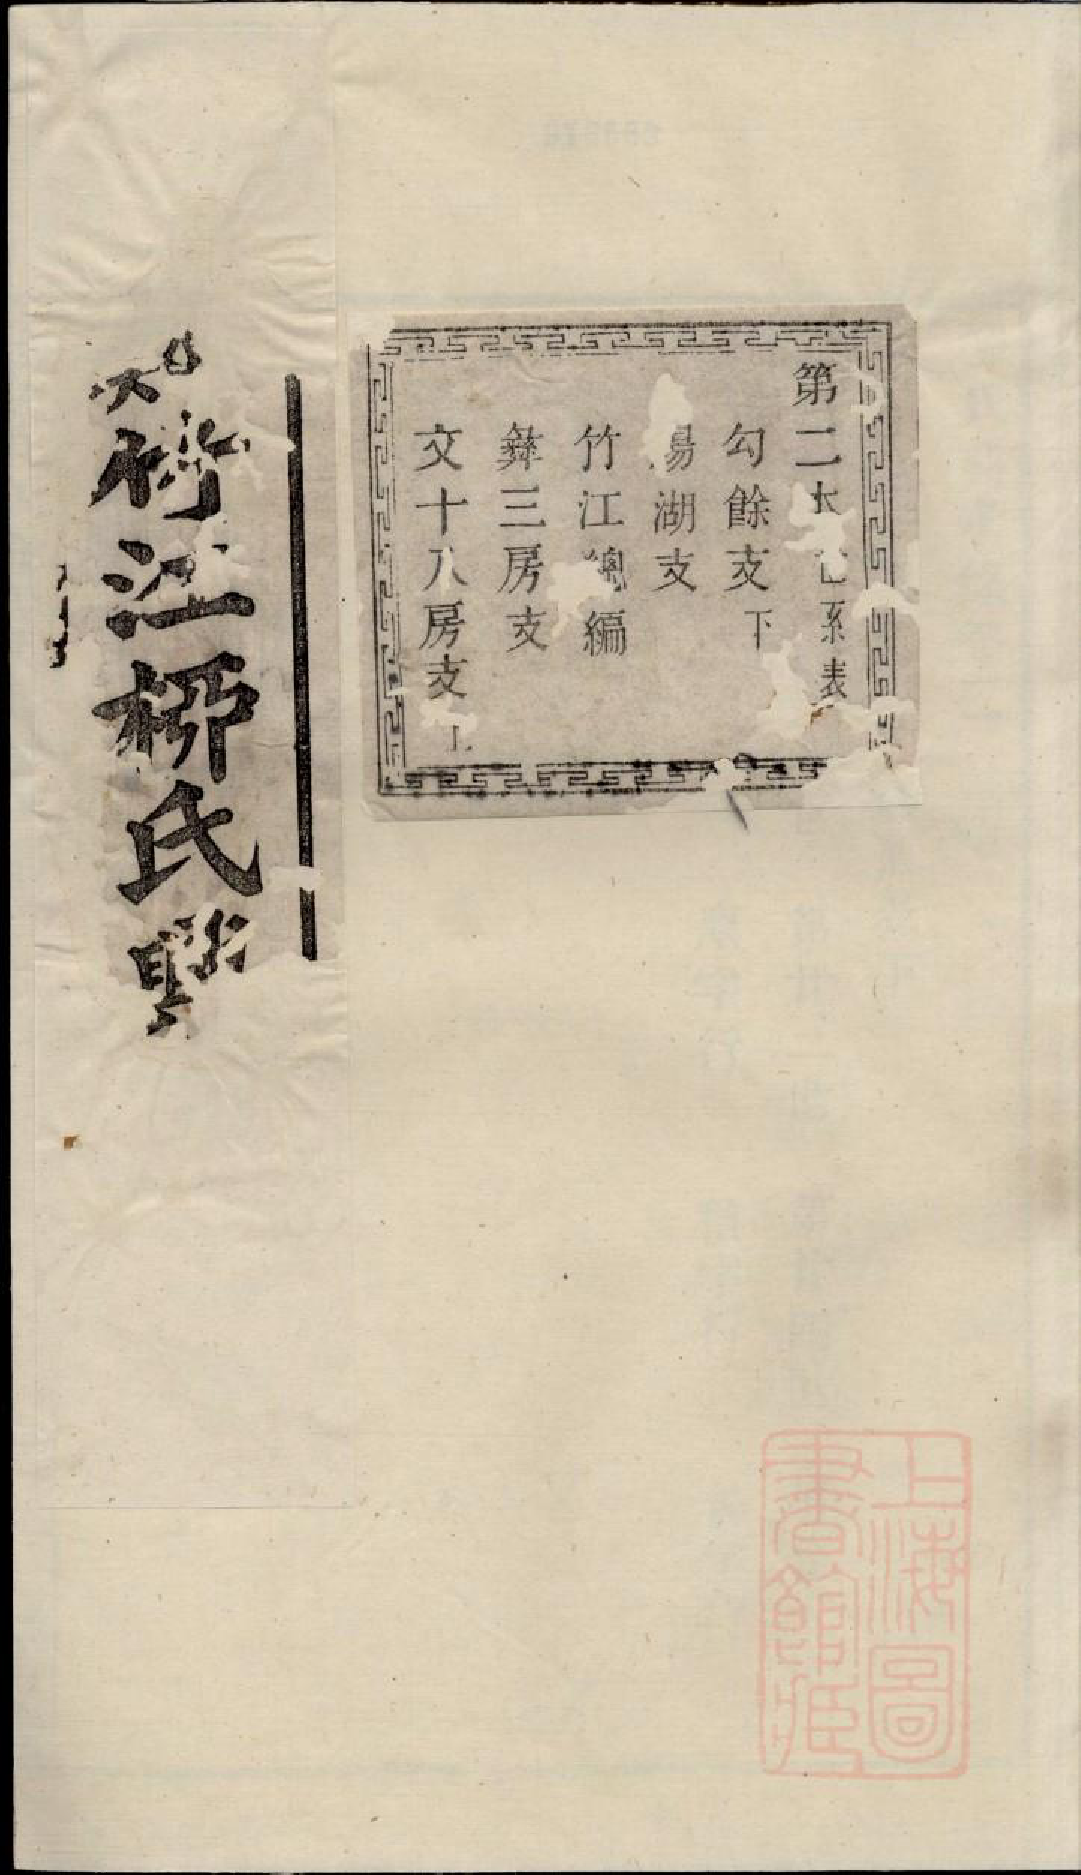 第二本世系表
勾餘支下
湯湖支
竹江總編
彝三房支
文十八房支上
江柳氏
上海圖
書館藏